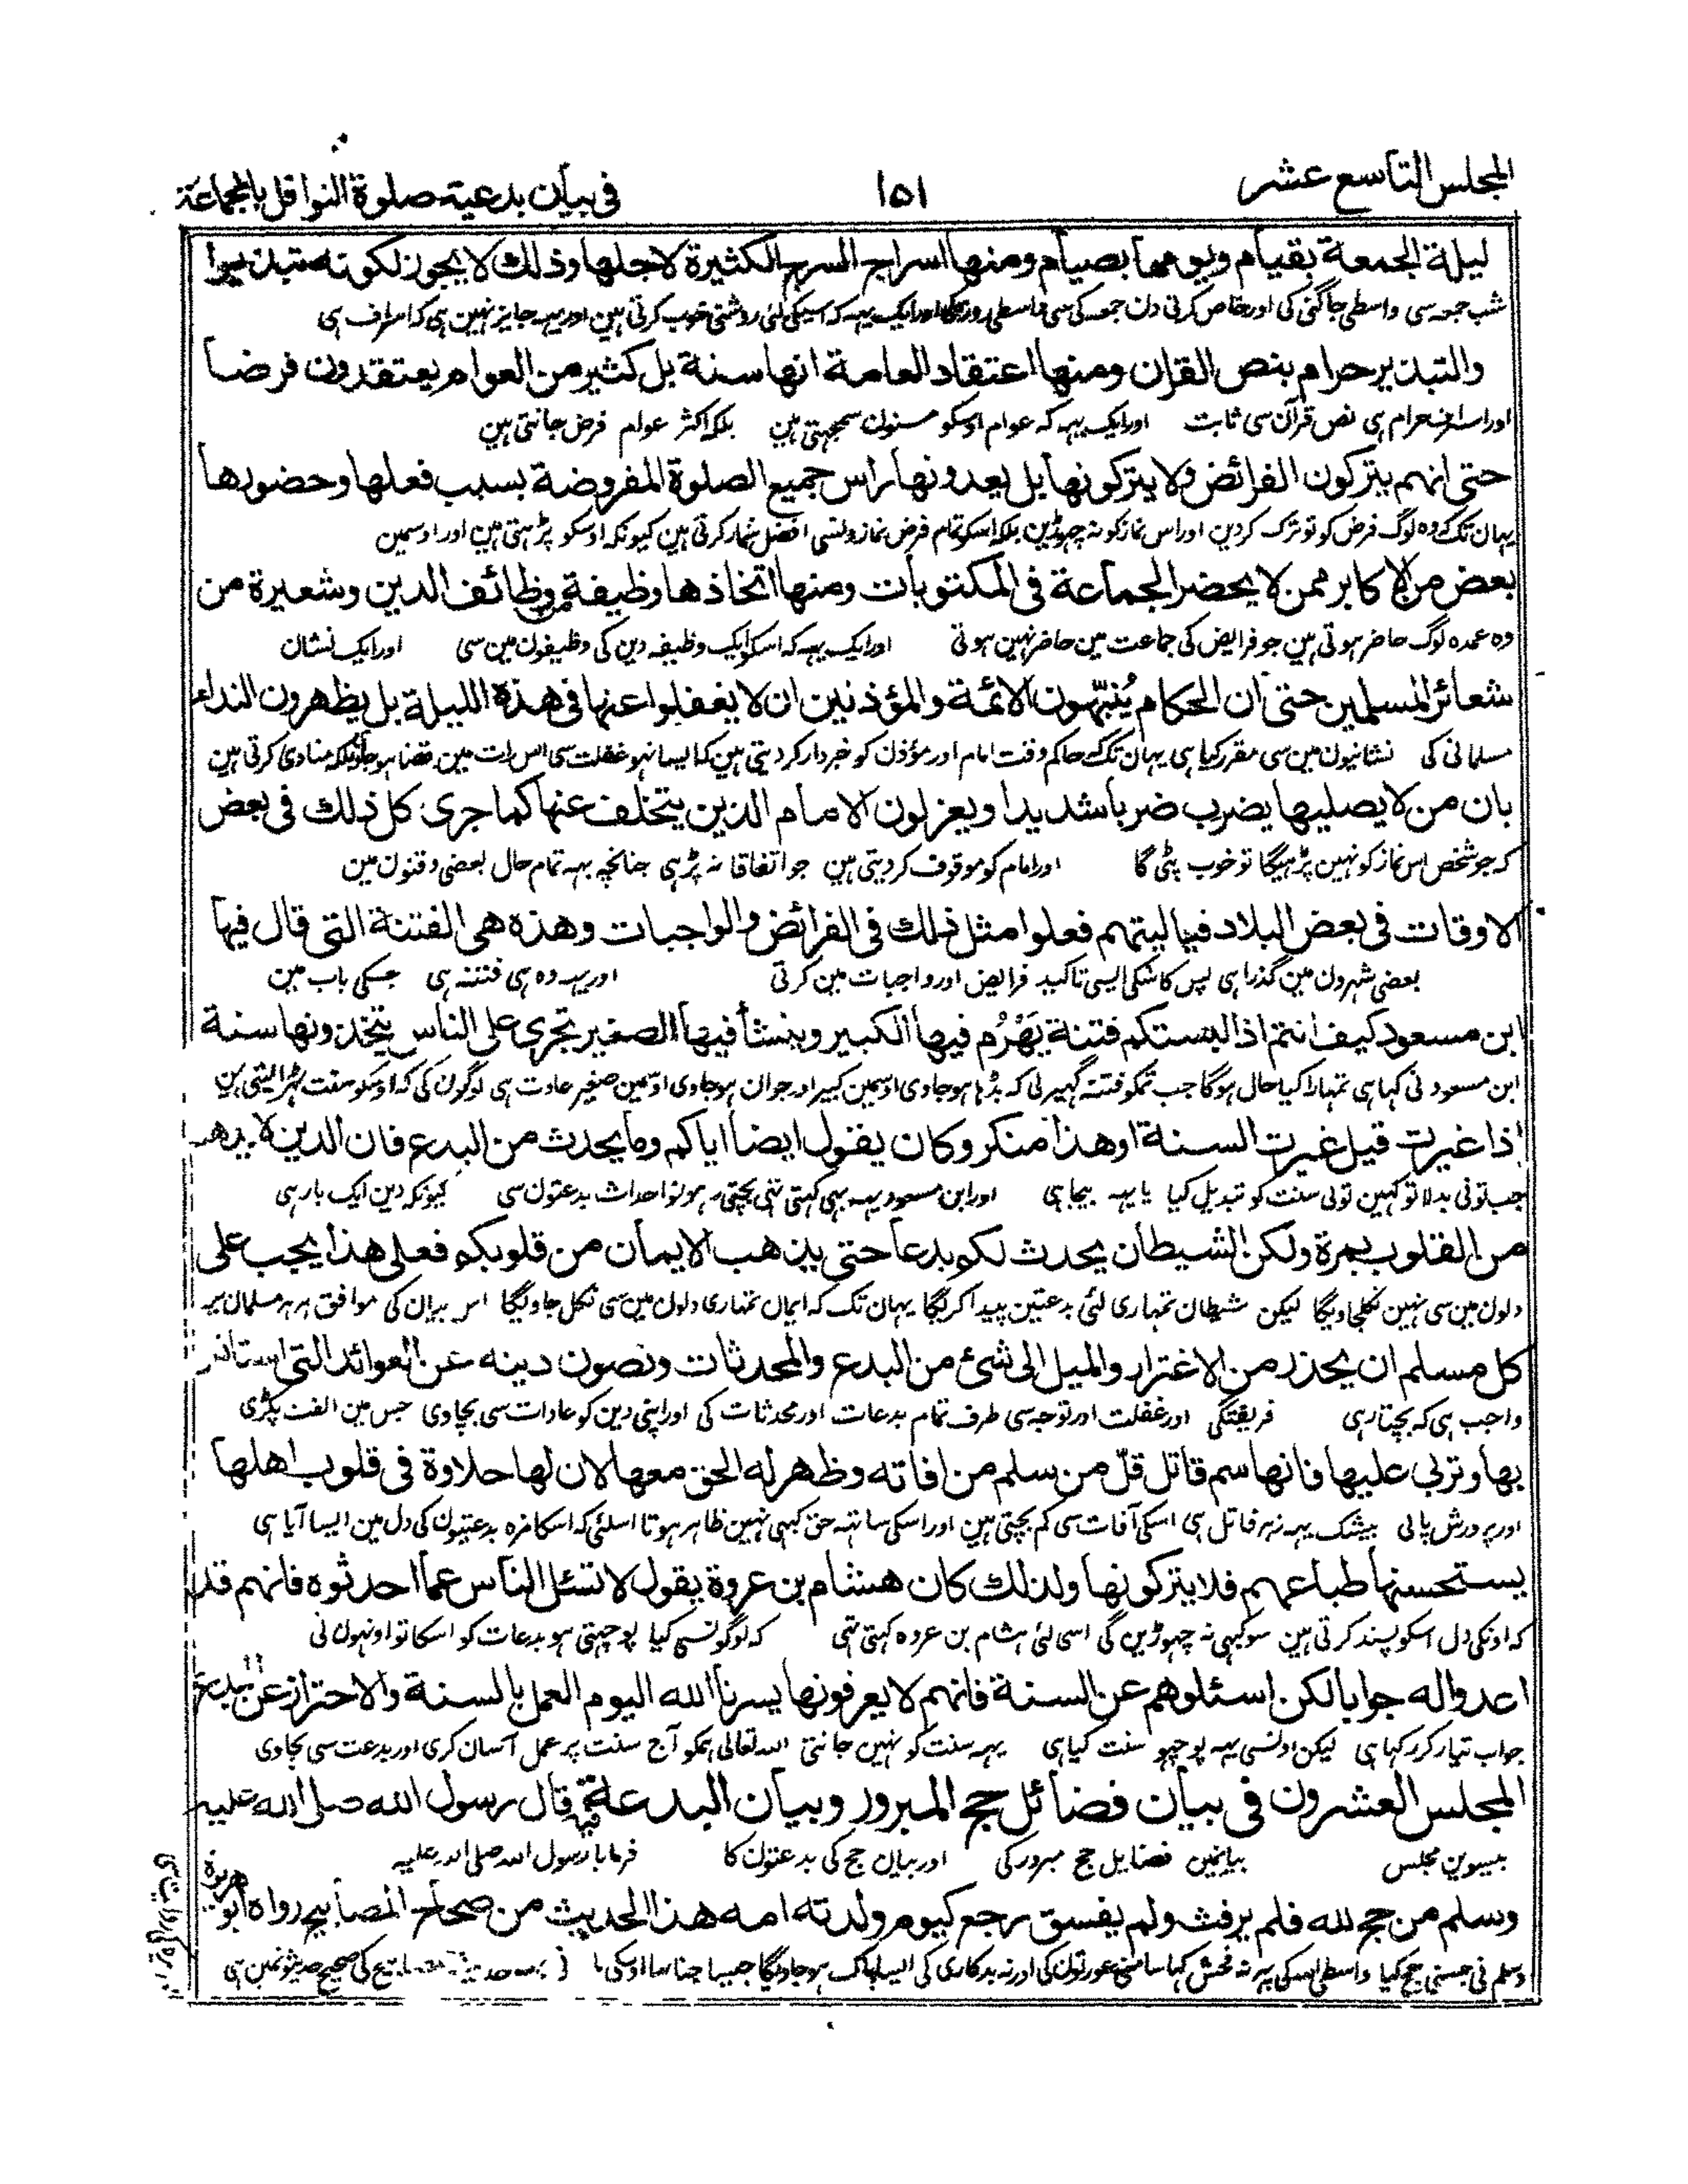 المجلس التاسع عشر
١٥١
فى بيان بدعية صلوة النوافل بالجماعة
ليلة الجمعة بقيام ويومها بصيام ومنها اسراج السرج الكثيرة لاجلها وذلك لا يجوز لكونه تبذيرا
شب جمعہ سی واسطی جاگنی کی اور خاص کرتی دن جمعہ کی سی واسطی روزہ کی اور ایک یہہ کہ اسیکی لئی روشنی خوب کرتی ہین اور یہہ جایز نہین ہی کہ اسراف ہی
والتبذير حرام بنص القران ومنها اعتقاد العامة انها سنة بل كثير من العوام يعتقدون فرضا
اور اسراف حرام ہی نص قرآن سی ثابت اور ایک یہہ کہ عوام اوسکو مسنون سمجہتی ہین بلکہ اکثر عوام فرض جانتی ہین
حتى انهم يتركون الفرائض ولا يتركونها بل يعدونها راس جميع الصلوة المفروضة بسبب فعلها وحضورها
یہان تک کہ وہ لوگ فرض کو تو ترک کردین اور اس نماز کو نہ چہوڑین بلکہ اسکو تمام فرض نمازونسی افضل شمار کرتی ہین کیونکہ اوسکو پڑہتی ہین اور اوسمین
بعض من الاكابر ممن لا يحضر الجماعة فى المكتوبات ومنها اتخاذها وظيفة من وظائف الدين وشعيرة من
وہ عمدہ لوگ حاضر ہوتی ہین جو فرایض کی جماعت مین حاضر نہین ہوتی اور ایک یہہ کہ اسکو ایک وظیفہ دین کی وظیفون مین سی اور ایک نشان
شعائر المسلمين حتى ان الحكام يُنبّهون الائمة والمؤذنين ان لا يغفلوا عنها فى هذه الليلة بل يظهرون النداء
مسلمانی کی نشانیون مین سی مقرر کیا ہی یہان تک کہ حاکم وقت امام اور مؤذن کو خبردار کردیتی ہین کہ ایسا نہو غفلت سی اس رات مین قضا ہوجاوی بلکہ منادی کرتی ہین
بان من لا يصليها يضرب ضربا شديدا ويعزلون الامام الذين يتخلف عنها كما جرى كل ذلك فى بعض
کہ جو شخص اس نماز کو نہین پڑہیگا تو خوب پٹی گا اور امام کو موقوف کردیتی ہین جو اتفاقا نہ پڑہی چنانچہ یہہ تمام حال بعضی وقتون مین
الاوقات فى بعض البلاد فيا ليتهم فعلوا مثل ذلك فى الفرائض والواجبات وهذه هى الفتنة التى قال فيها
بعضی شہرون مین گذرا ہی پس کاشکی ایسی تاکید فرایض اور واجبات مین کرتی اور یہہ وہ ہی فتنہ ہی جسکی باب مین
ابن مسعود كيف انتم اذا لبستكم فتنة يَهْرُم فيها الكبير وينشأ فيها الصغير تجرى على الناس يتخذونها سنة
ابن مسعود نی کہا ہی تمہارا کیا حال ہوگا جب تمکو فتنہ گہیر لی کہ بڈہا ہوجاوی اوسمین کبیر اور جوان ہوجاوی اوسمین صغیر عادت ہی لوگون کی کہ اوسکو سنت ٹہرالیتی ہین
اذا غيرت قيل غيرت السنة او هذا منكر وكان يقول ايضا اياكم وما يحدث من البدع فان الدين لا يذهب
جب تونی بدلا تو کہین تونی سنت کو تبدیل کیا یا یہہ بیجا ہی اور ابن مسعود یہہ بہی کہتی تہی بچتی رہو نو احداث بدعتون سی کیونکہ دین ایک بارہی
من القلوب بمرة ولكن الشيطان يحدث لكم بدعا حتى يذهب الايمان من قلوبكم فعلى هذا يجب على
دلون مین سی نہین نکلجاویگا لیکن شیطان تمہاری لئی بدعتین پیدا کریگا یہان تک کہ ایمان تمہاری دلون مین سی نکل جاویگا اس بیان کی موافق ہر ہر مسلمان پر
كل مسلم ان يحذر من الاغترار والميل الى شئ من البدع والمحدثات ونصون دينه عن العوائد التى استانس
واجب ہی کہ بچتا رہی فریفتگی اور غفلت اور توجہ سی طرف تمام بدعات اور محدثات کی اور اپنی دین کو عادات سی بچاوی جس مین الفت پکڑی
بها وتربى عليها فانها سم قاتل قلّ من سلم من افاته وظهر له الحق معها لان لها حلاوة فى قلوب اهلها
اور پرورش پائی بیشک یہہ زہر قاتل ہی اسکی آفات سی کم بچتی ہین اور اسکی ساتہہ حق کبہی نہین ظاہر ہوتا اسلئی کہ اسکا مزہ بدعتیون کی دل مین ایسا آیا ہی
يستحسنها طباعهم فلا يتركونها ولذلك كان هشام بن عروة يقول لا تسئل الناس عما احدثوه فانهم قد
کہ اونکی دل اسکو پسند کرتی ہین سو کبہی نہ چہوڑین گی اسی لئی ہشام بن عروہ کہتی تہی کہ لوگونسی کیا پوچہتی ہو بدعات کو اسکا تو اونہون نی
اعدوا له جوابا لكن اسئلوهم عن السنة فانهم لا يعرفونها يسرنا الله اليوم العمل بالسنة والاحتراز عن البدعة
جواب تیار کر رکہا ہی لیکن اونسی یہہ پوچہو سنت کیا ہی یہہ سنت کو نہین جانتی اللہ تعالی ہمکو آج سنت پر عمل آسان کری اور بدعت سی بچاوی
المجلس العشرون فى بيان فضائل حج المبرور وبيان البدعة فيه قال رسول الله صلى الله عليه
بیسوین مجلس بیانمین فضایل حج مبرور کی اور بیان حج کی بدعتون کا فرمایا رسول اللہ صلی اللہ علیہ
وسلم من حج لله فلم يرفث ولم يفسق رجع كيوم ولدته امه هذا الحديث من صحاح المصابيح رواه ابو هريرة
وسلم نی جسنی حج کیا واسطی اللہ کی پہر نہ فحش کہا سامنی عورتون کی اور نہ بدکاری کی ایسا پاک ہوجاویگا جیسا جنا تہا اوسکی کی صحیح حدیثونمین ہی